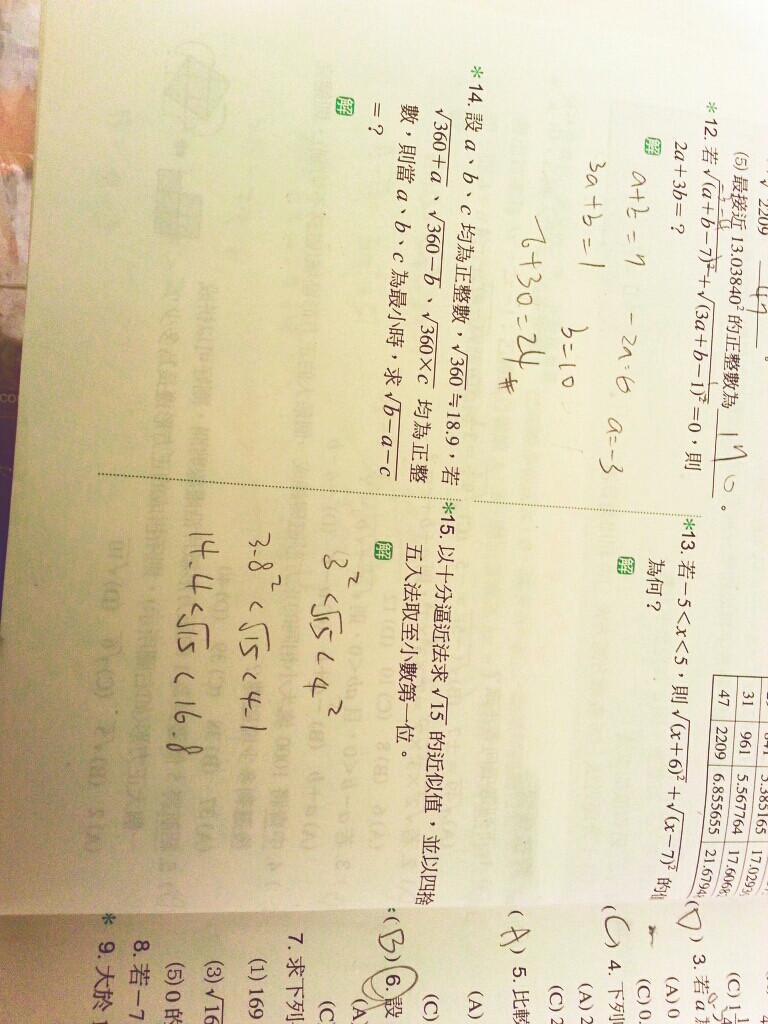 √2209 47 。
(5) 最接近 13.03840² 的正整數為 170 。
*12. 若 √(a+b−7)²+√(3a+b−1)²=0,則
2a+3b=?
解
a+b=7 −2a=6 a=−3
3a+b=1 b=10
−6+30=24 #
31 961 5.567764 17.6068
47 2209 6.855655 21.6794
*13. 若−5<x<5,則 √(x+6)²+√(x−7)² 的
為何?
解
*14. 設 a、b、c 均為正整數,√360≒18.9,若
√360+a、√360−b、√360×c 均為正整
數,則當 a、b、c 為最小時,求 √b−a−c
=?
解
*15. 以十分逼近法求 √15 的近似值,並以四捨
五入法取至小數第一位。
解
3²<√15<4²
3.8²<√15<4.1
14.4<√15<16.8
(D) 3. 若 a
(A) 0
(C) 0.
(C) 4. 下列
(A) 2
(C) 2
(A) 5. 比較
(A)
(C)
(B) 6. 設
(A)
(C)
7. 求下列
(1) 169
(3) √16
(5) 0 的
8. 若−7
*9. 大於